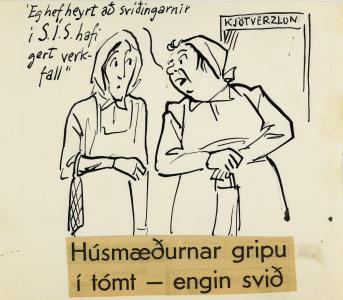 "Eg hef heyrt að sviðingarnir
í S.I.S. hafi
gert verk-
fall"
KJÖTVERZLUN
Húsmæðurnar gripu
í tómt — engin svið